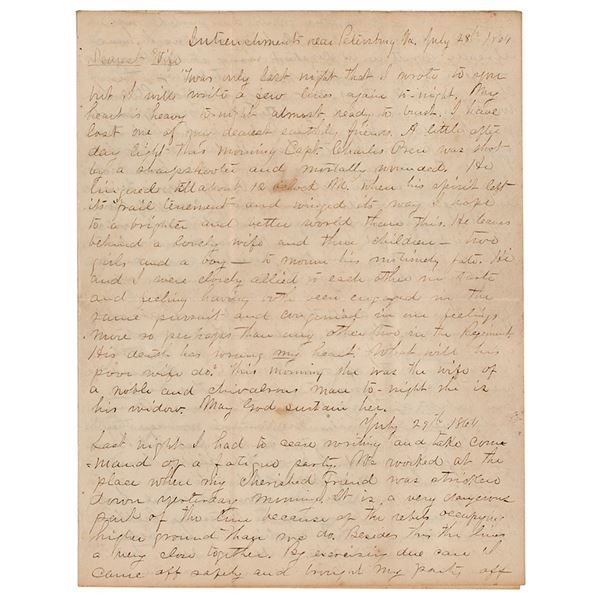 Intrenchments near Petersburg Va. July 28th 1864
Dearest Wife
'Twas only last night that I wrote to you
but I will write a few lines again to-night. My
heart is heavy to-night almost ready to burst. I have
lost one of my dearest earthly friends. A little after
day light this morning Capt. Charles was shot
by a sharpshooter and mortally wounded. He
lingered till about 12 oclock M. when his spirit left
its frail tenement and winged its way I hope
to a brighter and better world than this. He leaves
behind a lovely wife and three children — two
girls and a boy — to mourn his untimely fate. He
and I were closely allied to each other in taste
and feeling having both been engaged in the
same pursuit and congenial in our feelings
more so perhaps than any other two in the Regiment.
His death has wrung my heart. What will his
poor wife do. This morning she was the wife of
a noble and chivalrous man to-night she is
his widow. May God sustain her.
July 29th 1864
Last night I had to cease writing and take com-
-mand of a fatigue party. We worked at the
place where my cherished friend was stricken
down yesterday morning. It is a very dangerous
part of the line because of the rebels occupying
higher ground than we do. Besides this the lines
a very close together. By exercising due care I
came off safely and brought my party off